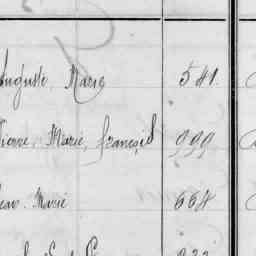 Auguste, Marie 541
Pierre, Marie, françois 999
Jean Marie 668